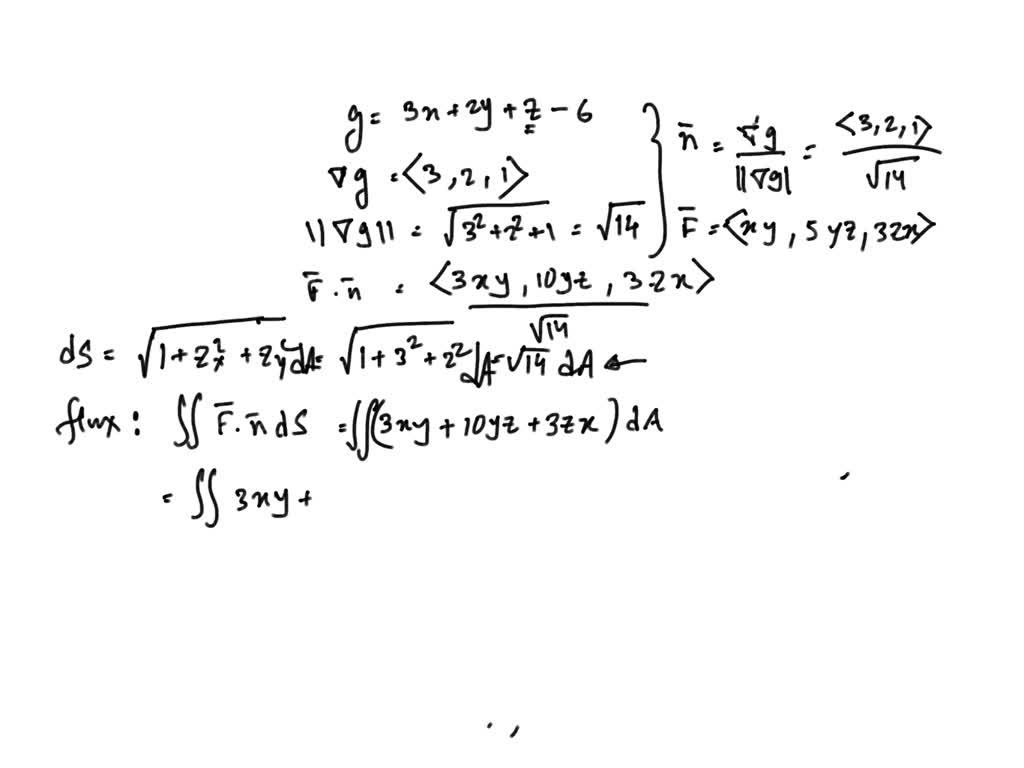 g = 3x + 2y + z - 6
∇g = <3, 2, 1>
||∇g|| = √(3² + 2² + 1) = √14
n̄ = ∇g / ||∇g| = <3, 2, 1> / √14
F̄ = <xy, 5yz, 3zx>
F̄ · n̄ = <3xy, 10yz, 3zx> / √14
dS = √(1 + z²ₓ + z²ᵧ) dA = √(1 + 3² + 2²) dA = √14 dA ←
flux : ∬ F̄ · n̄ dS = ∬ (3xy + 10yz + 3zx) dA
= ∬ 3xy +